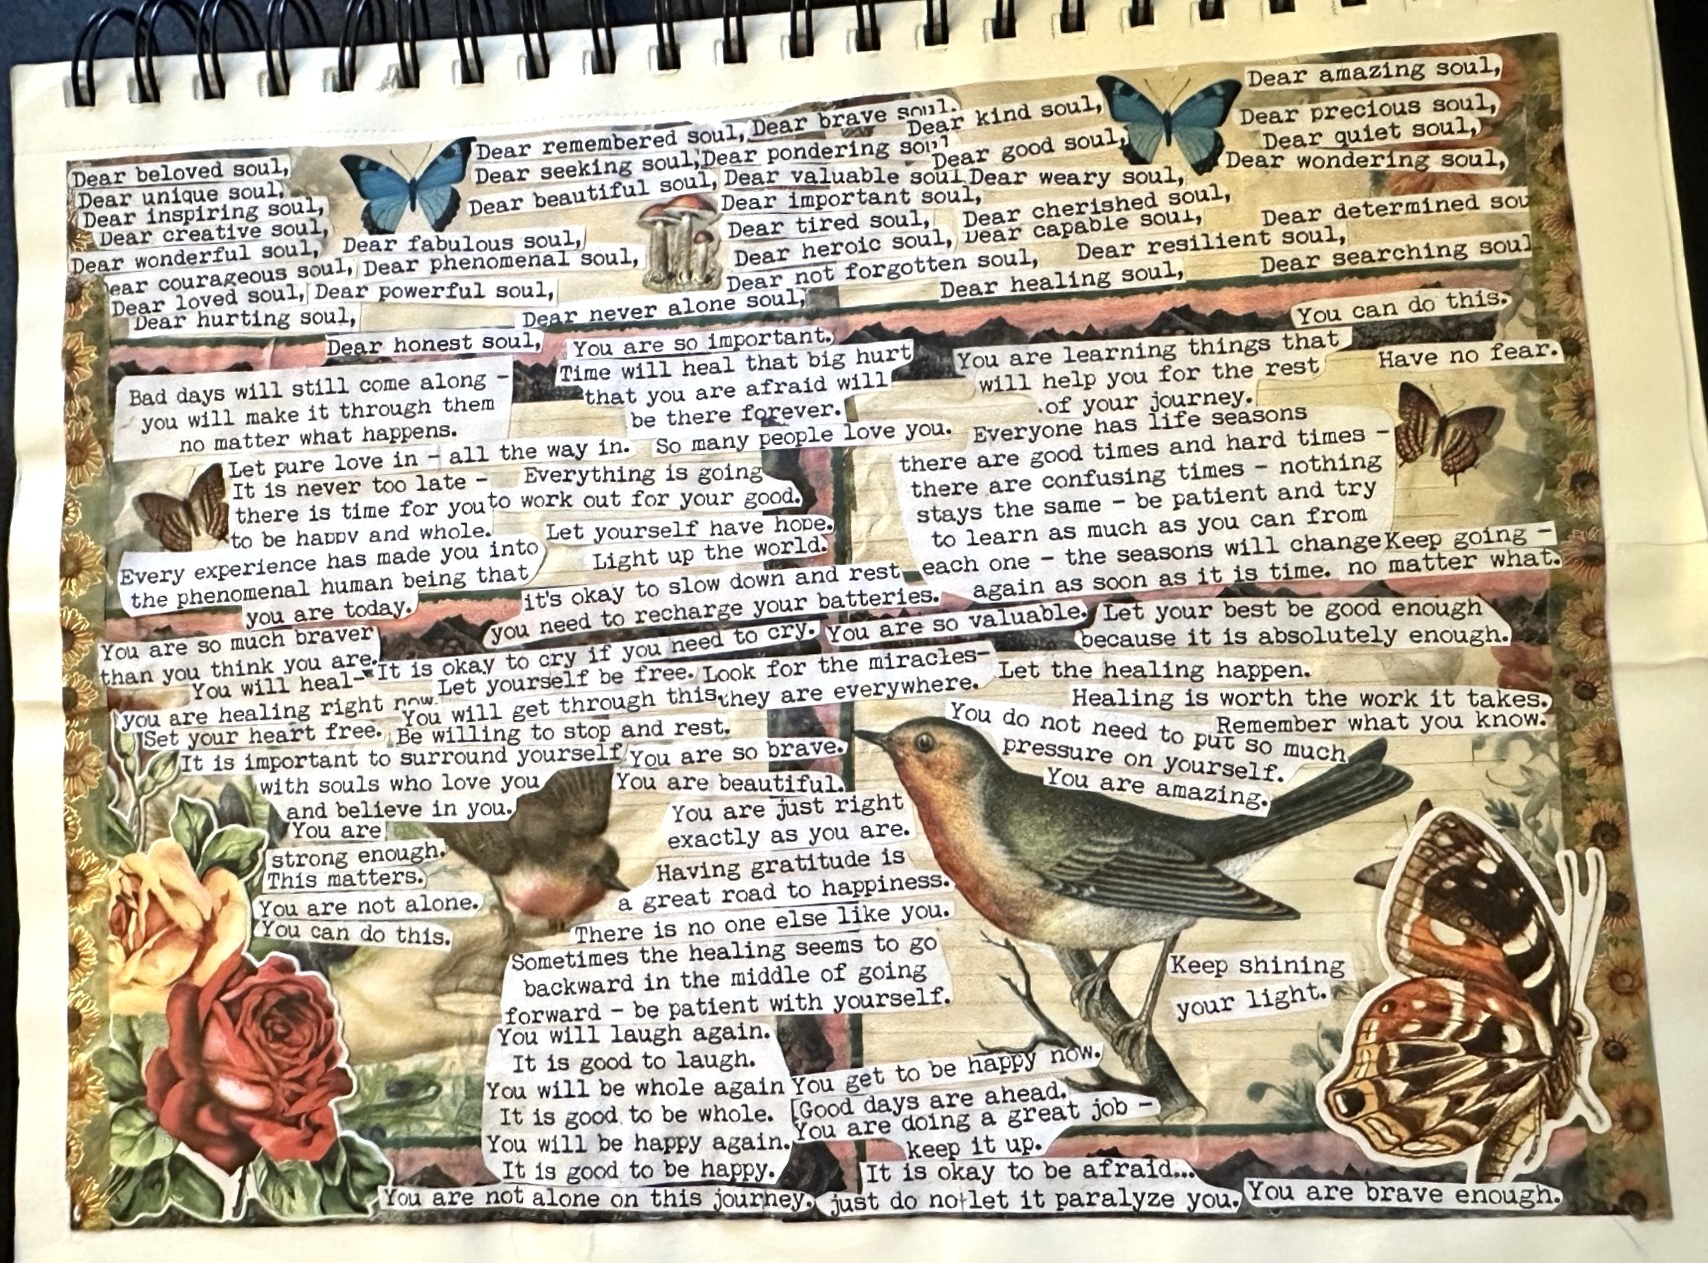 Dear beloved soul,
Dear unique soul,
Dear inspiring soul,
Dear creative soul,
Dear wonderful soul,
ear courageous soul,
Dear loved soul,
Dear hurting soul,
Dear fabulous soul,
Dear phenomenal soul,
Dear powerful soul,
Dear never alone soul,
Dear honest soul,
Dear remembered soul,
Dear seeking soul,
Dear beautiful soul,
Dear brave soul.
Dear pondering soul
Dear valuable soul
Dear important soul,
Dear tired soul,
Dear heroic soul,
Dear not forgotten soul,
Dear kind soul,
Dear good soul,
Dear weary soul,
Dear cherished soul,
Dear capable soul,
Dear resilient soul,
Dear healing soul,
Dear amazing soul,
Dear precious soul,
Dear quiet soul,
Dear wondering soul,
Dear determined sou
Dear searching soul
You can do this.
Have no fear.
Bad days will still come along -
you will make it through them
no matter what happens.
You are so important.
Time will heal that big hurt
that you are afraid will
be there forever.
So many people love you.
You are learning things that
will help you for the rest
of your journey.
Everyone has life seasons
there are good times and hard times -
there are confusing times - nothing
stays the same - be patient and try
to learn as much as you can from
each one - the seasons will change
again as soon as it is time.
Keep going -
no matter what.
Let pure love in - all the way in.
It is never too late -
there is time for you
to be happy and whole.
Everything is going
to work out for your good.
Let yourself have hope.
Light up the world.
Every experience has made you into
the phenomenal human being that
you are today.
it's okay to slow down and rest
you need to recharge your batteries.
You are so much braver
than you think you are.
It is okay to cry if you need to cry.
You are so valuable.
Let your best be good enough
because it is absolutely enough.
You will heal-
you are healing right now.
Let yourself be free.
Look for the miracles-
they are everywhere.
Let the healing happen.
Healing is worth the work it takes.
Remember what you know.
You will get through this
Set your heart free.
Be willing to stop and rest.
You do not need to put so much
pressure on yourself.
You are amazing.
It is important to surround yourself
with souls who love you
and believe in you.
You are so brave.
You are beautiful.
You are
strong enough.
This matters.
You are not alone.
You can do this.
You are just right
exactly as you are.
Having gratitude is
a great road to happiness.
There is no one else like you.
Sometimes the healing seems to go
backward in the middle of going
forward - be patient with yourself.
Keep shining
your light.
You will laugh again.
It is good to laugh.
You will be whole again
It is good to be whole.
You will be happy again.
It is good to be happy.
You get to be happy now.
Good days are ahead.
You are doing a great job -
keep it up.
It is okay to be afraid...
just do not let it paralyze you.
You are not alone on this journey.
You are brave enough.